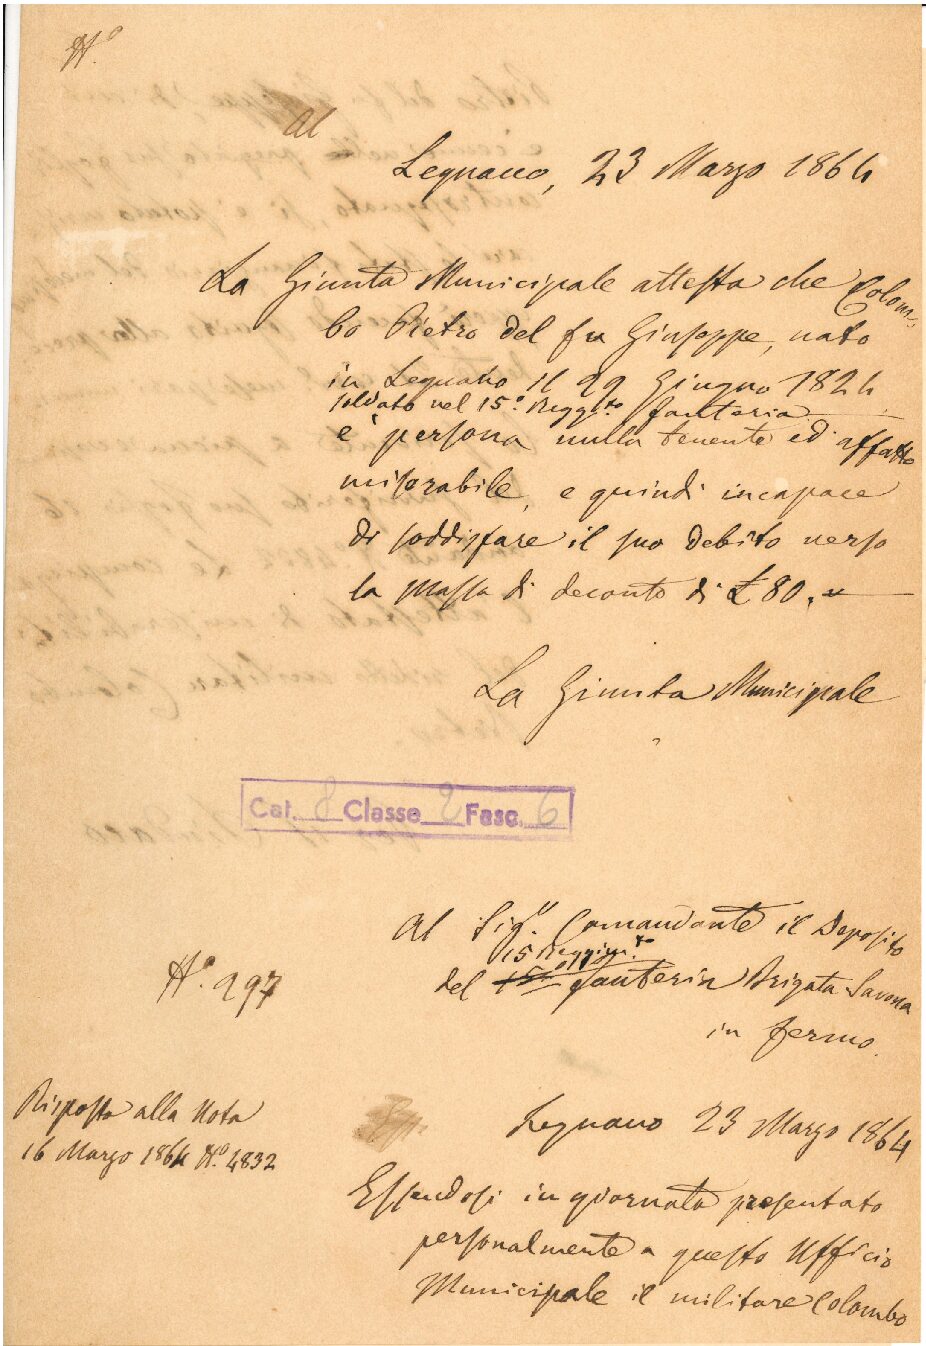 N.º
Al
Legnano, 23 Marzo 1864
La Giunta Municipale attesta che Colom-
bo Pietro del fu Giuseppe, nato
in Legnano il 29 Giugno 1824
soldato nel 15.º Reggi.to fanteria
è persona nulla tenente ed affatto
miserabile, e quindi incapace
di soddisfare il suo debito verso
la Massa di deconto di £ 80.
La Giunta Municipale
Cat. 8 Classe 2 Fasc. 6
Al Sig.r Comandante il Deposito
15 Reggim.to
del 15º fanteria Brigata Savona
in Fermo.
N.º 297
Risposta alla Nota
16 Marzo 1864 N.º 4832
Legnano 23 Marzo 1864
Essendosi in giornata presentato
personalmente a questo Ufficio
Municipale il militare Colombo